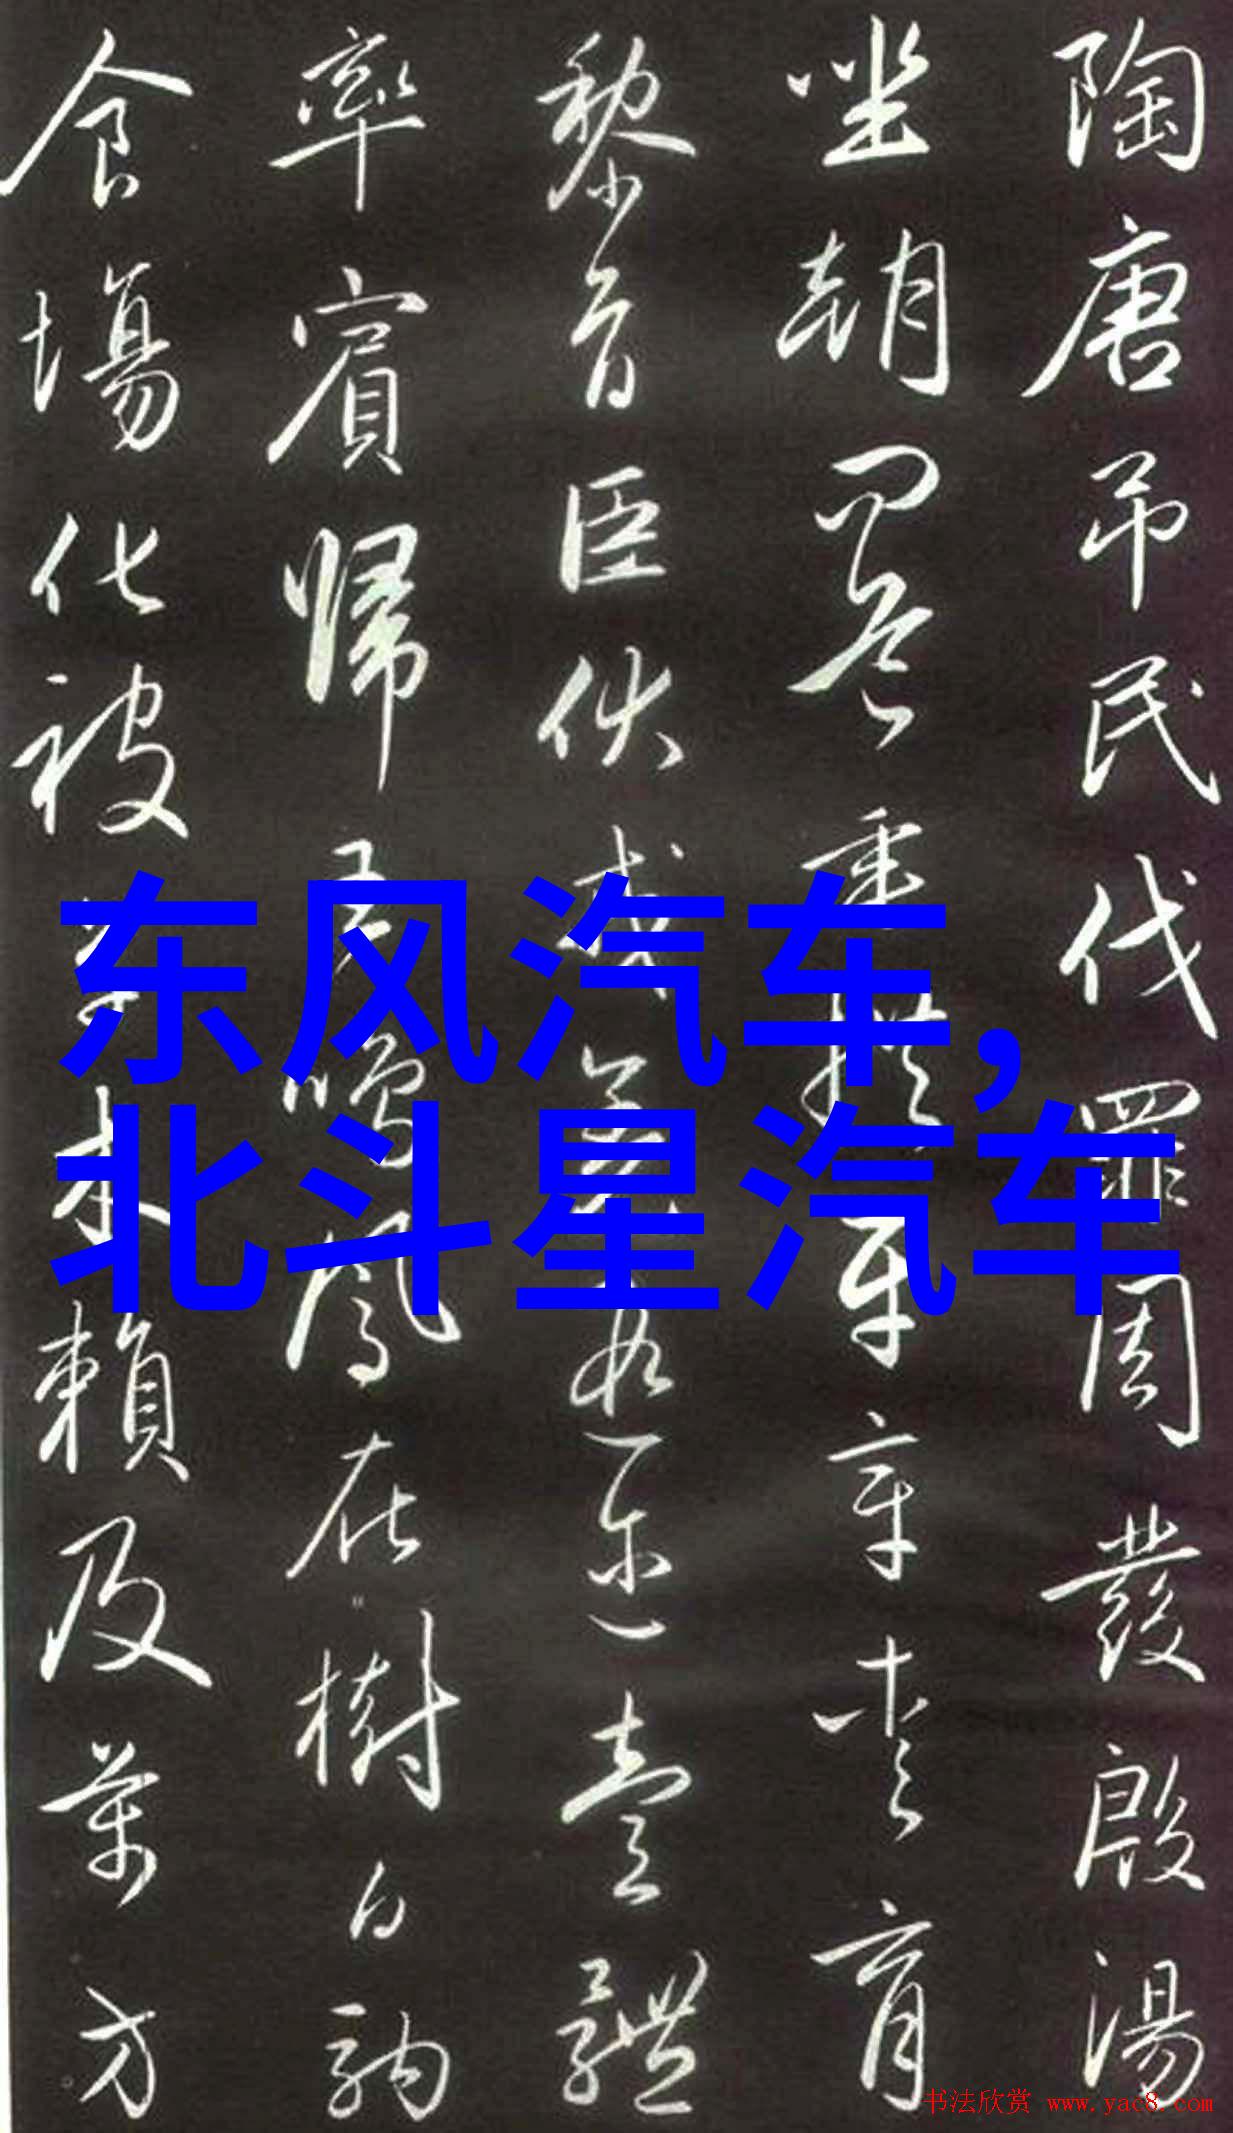 陶唐吊民伐罪周發殷湯
坐朝問道垂拱平章愛育
黎首臣伏戎羌遐迩壹體
率賓帰王鳴鳳在樹白駒
食場化被草木賴及萬方
东风汽车,
北斗星汽车
书法欣赏 www.yac8.com